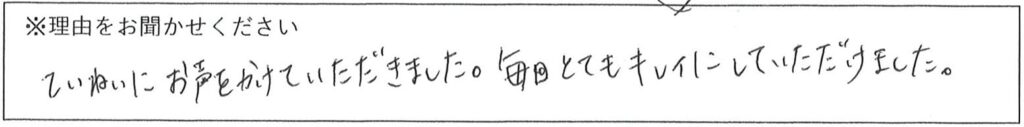 ※理由をお聞かせください
ていねいにお声をかけていただきました。毎回とてもキレイにしていただけました。